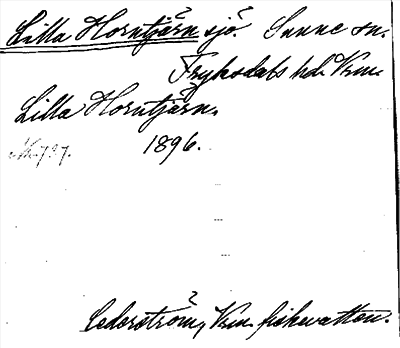 Lilla Horntjärn sjö Sunne sn.
Fryksdals hd. Vrm.
Lilla Horntjärn.
1896.
Cederström, Vrm. fiskevatten.